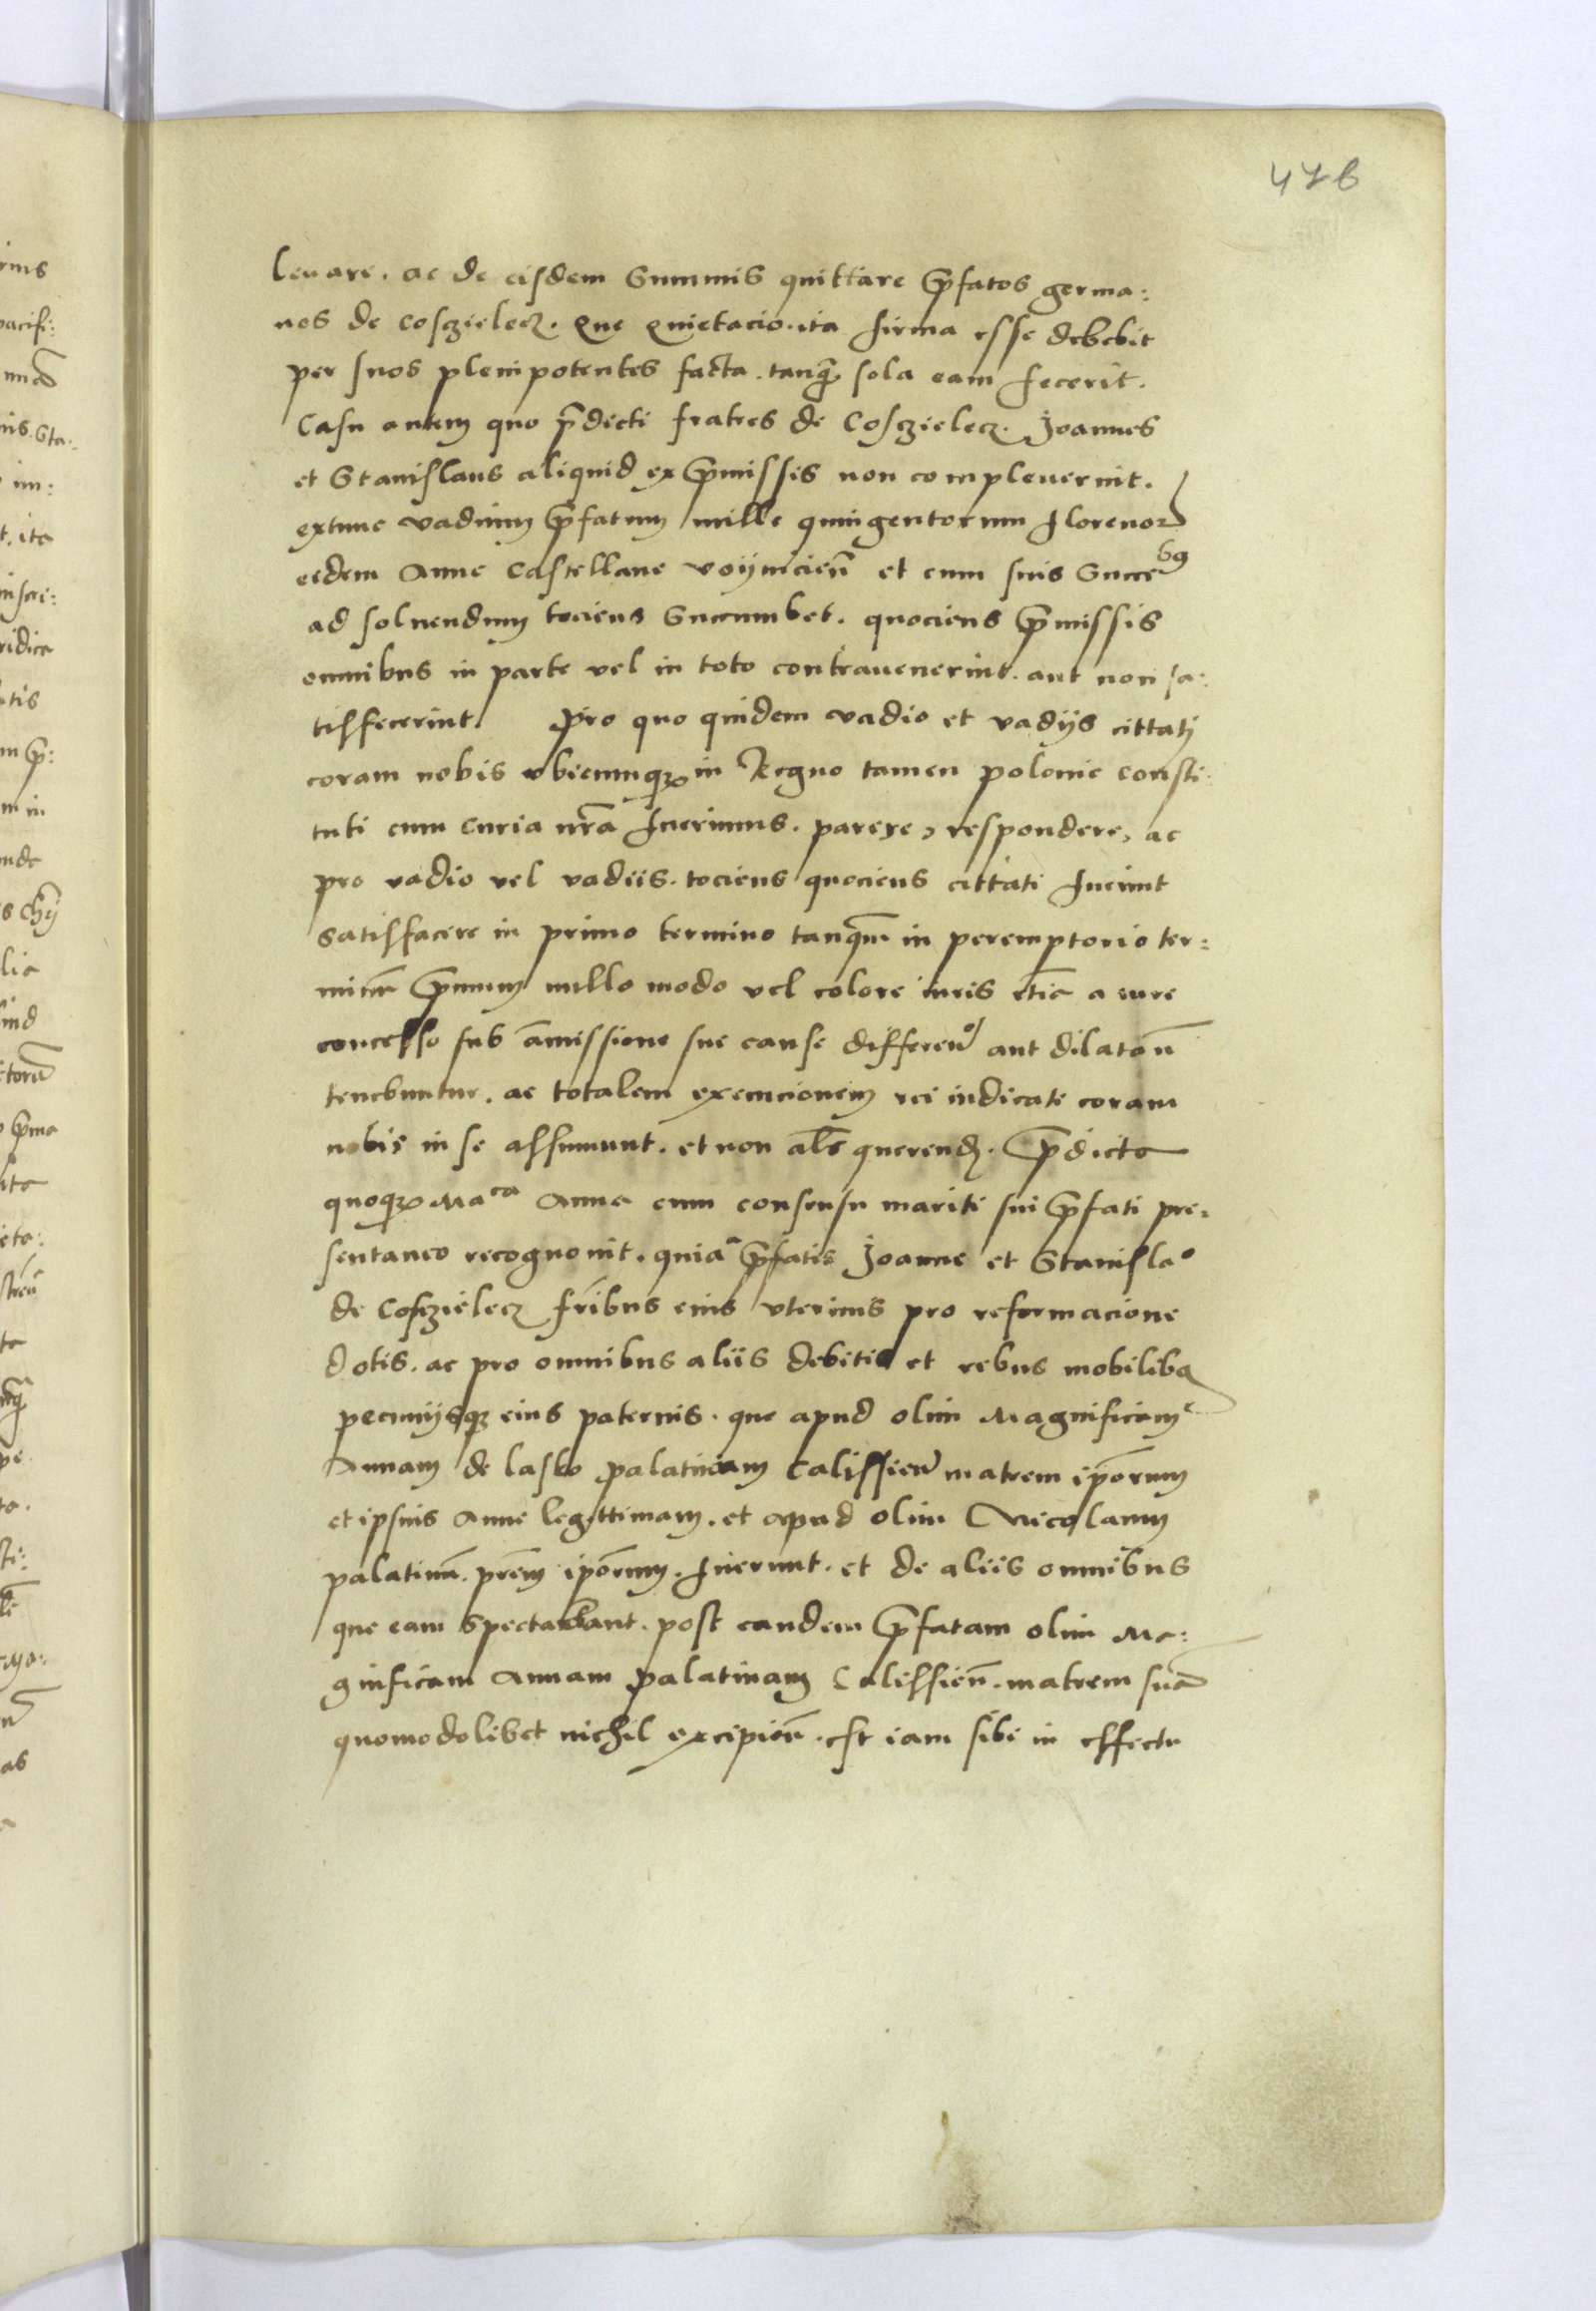 476
leuare. ac de eisdem Summis quittare p̄fatos germa:
nos de Cosczielecz. Que Quietacio. ita firma esse debebit
per suos plenipotentes facta. tanq̄ sola eam fecerit.
Casu autem quo p̄dicti fratres de Cosczielecz. Joannes
et Stanislaus aliquid ex p̄missis non compleuerint.
extunc vadium p̄fatum mille quingentorum florenoꝝ
eidem Anne Castellane voynicień et cum suis Succeᵇ⁹
ad soluendum tociens Succumbet. quociens p̄missis
omnibus in parte vel in toto contrauenerint. aut non sa:
tisfecerint. Pro quo quidem vadio et vadijs cittati
coram nobis vbicumqꝫ in Regno tamen polonie consti:
tuti cum Curia nr̄a fuerimus. parere, respondere, ac
pro vadio vel vadiis. tociens quociens cittati fuerint
satisfacere in primo termino tanq̄m in peremptorio ter:
minū p̄mum nullo modo vel colore iuris etiā a iure
concesso sub amissione sue cause differeń aut dilatań
tenebuntur. ac totalem execucionem rei iudicate coram
nobis in se assumunt. et non al̄s querend. P̄dicta
quoqꝫ Maᶜᵃ Anna cum consensu mariti sui p̄fati pre:
sentaneo recognouit. quia p̄fatis Joanne et Stanislaᵒ
de Cosczielecz fr̄ibus eius vterinis pro reformacione
dotis. ac pro omnibus aliis debitis et rebus mobilibꝫ
pecunijsqꝫ eius paternis. que apud olim Magnificam
Annam de lasko palatinam Calissień matrem ip̄orum
et ipsius Anne legittimam. et apud olim Nicolaum
palatinū. pr̄em ip̄orum. fuerunt. et de aliis omnibus
que eam spectabant. post eandem p̄fatam olim Ma:
gnificam Annam palatinam Calissień. matrem suā
quomodolibet nichil excipień. est iam sibi in effectu